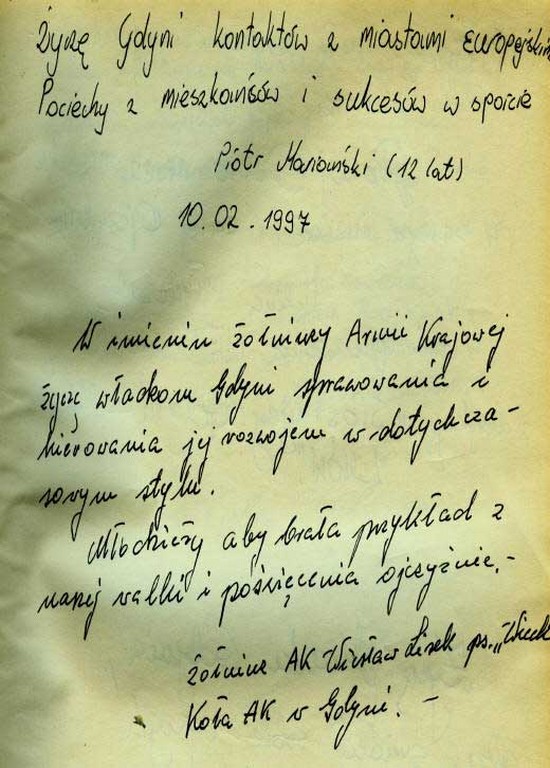 Życzę Gdyni kontaktów z miastami europejskimi
Pociechy z mieszkańców i sukcesów w sporcie
Piotr Marański (12 lat)
10.02.1997
W imieniu żołnierzy Armii Krajowej
życzę władzom Gdyni sprawowania i
kierowania jej rozwojem w dotychcza-
sowym stylu.
Młodzieży aby brała przykład z
naszej walki i poświęcenia ojczyźnie.-
żołnierz AK Wiesław Lisek ps.
Koła AK w Gdyni. -